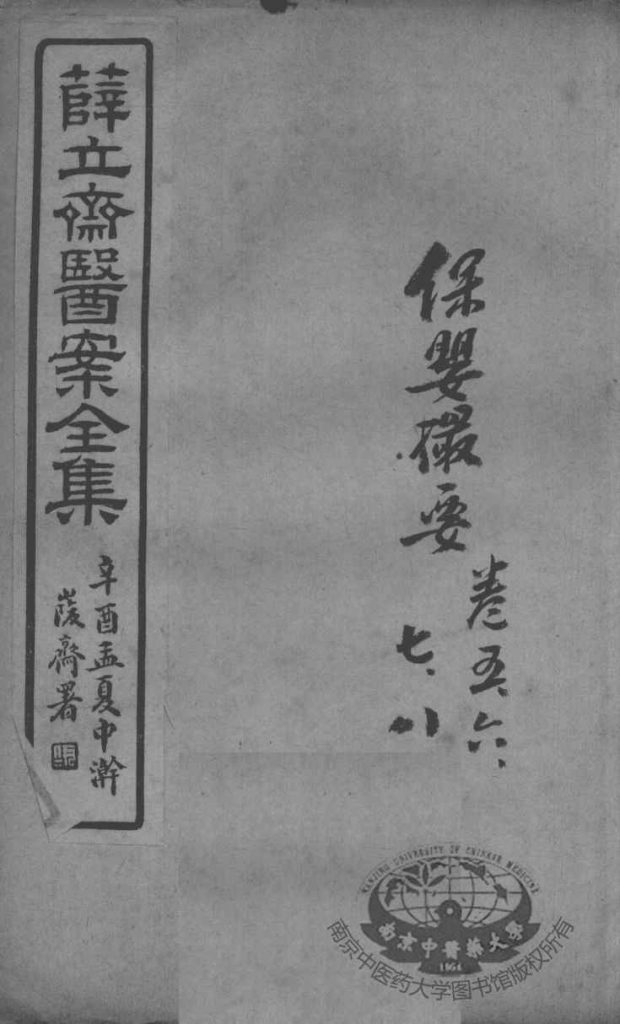 薛立齋醫案全集
辛酉孟夏中澣
葰齋署
保嬰撮要
卷五、六、
七、八
NANJING UNIVERSITY OF CHINESE MEDICINE
南京中醫藥大學
1954
南京中医药大学图书馆版权所有